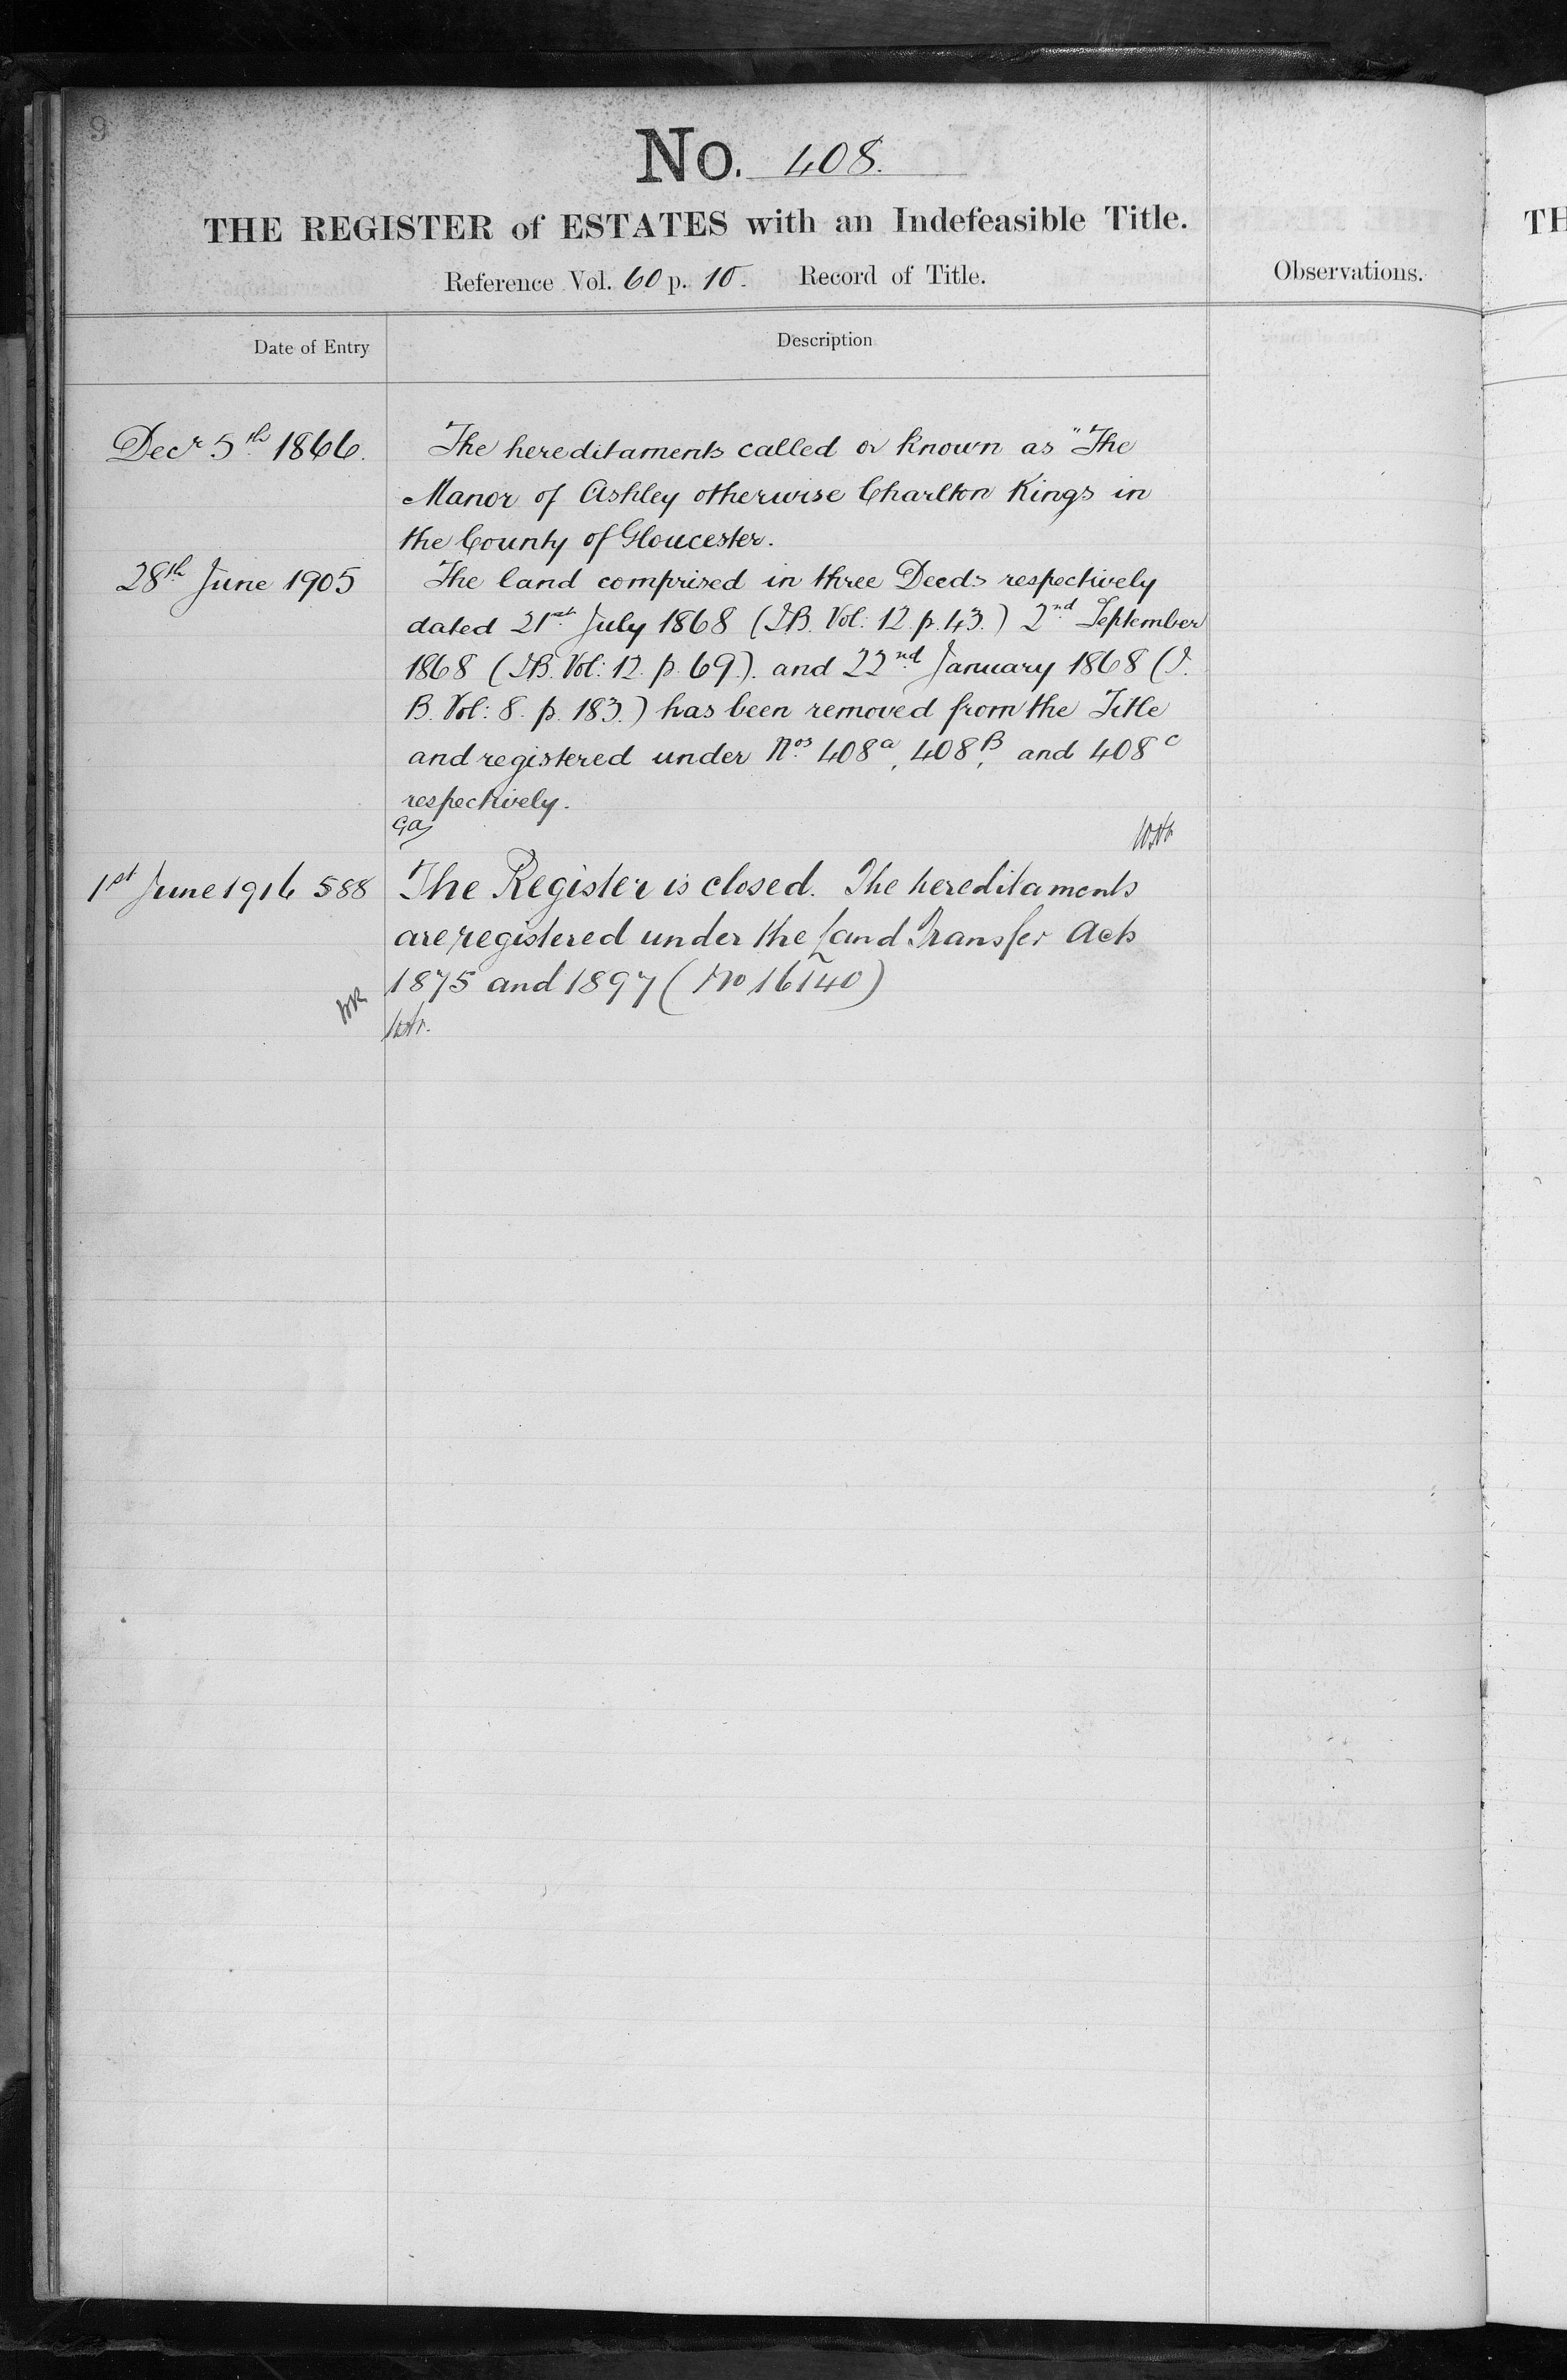 9
No. 408.
THE REGISTER of ESTATES with an Indefeasible Title.
Reference Vol. 60 p. 10. Record of Title.
Observations.
Date of Entry
Description
Decr 5th 1866.
The hereditaments called or known as "The
Manor of Ashley otherwise Charlton Kings in
the County of Gloucester.
28th June 1905
The land comprised in three Deeds respectively
dated 21st July 1868 (I.B. Vol: 12 p. 43.) 2nd September
1868 (I.B. Vol: 12. p. 69.). and 22nd January 1868 (I.
B. Vol: 8. p. 183.) has been removed from the Title
and registered under Nos 408a, 408B, and 408c
respectively.
1st June 1916 588
The Register is closed. The hereditaments
are registered under the Land Transfer Acts
1875 and 1897 (No 16140)
TH